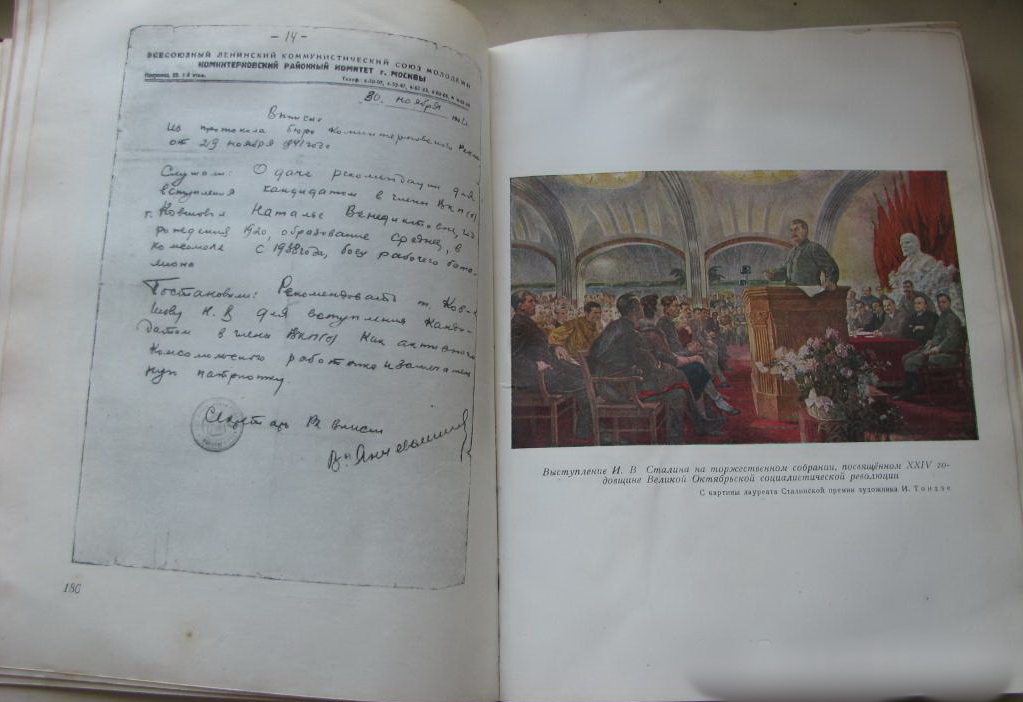 - 14 -
ВСЕСОЮЗНЫЙ ЛЕНИНСКИЙ КОММУНИСТИЧЕСКИЙ СОЮЗ МОЛОДЕЖИ
КОМИНТЕРНОВСКИЙ РАЙОННЫЙ КОМИТЕТ г. МОСКВЫ
30. ноября
Выписка
Из протокола бюро Коминтерновского
от 29 ноября 1941 года
Слушали: О даче рекомендации для
вступления кандидатом в члены ВКП(б)
т. Ковшовой Наталье Венедиктовне,
рождения 1920, образование среднее, в
комсомоле с года, боец рабочего бата-
лиона
Постановили: Рекомендовать т. Ков-
шову Н. В для вступления канди-
датом в члены ВКП(б) Как активного
Комсомольского работника и
ную патриотку.
Секретарь
180
Выступление И. В Сталина на торжественном собрании, посвящённом XXIV го-
довщине Великой Октябрьской социалистической революции
С картины лауреата Сталинской премии художника И. Тоидзе